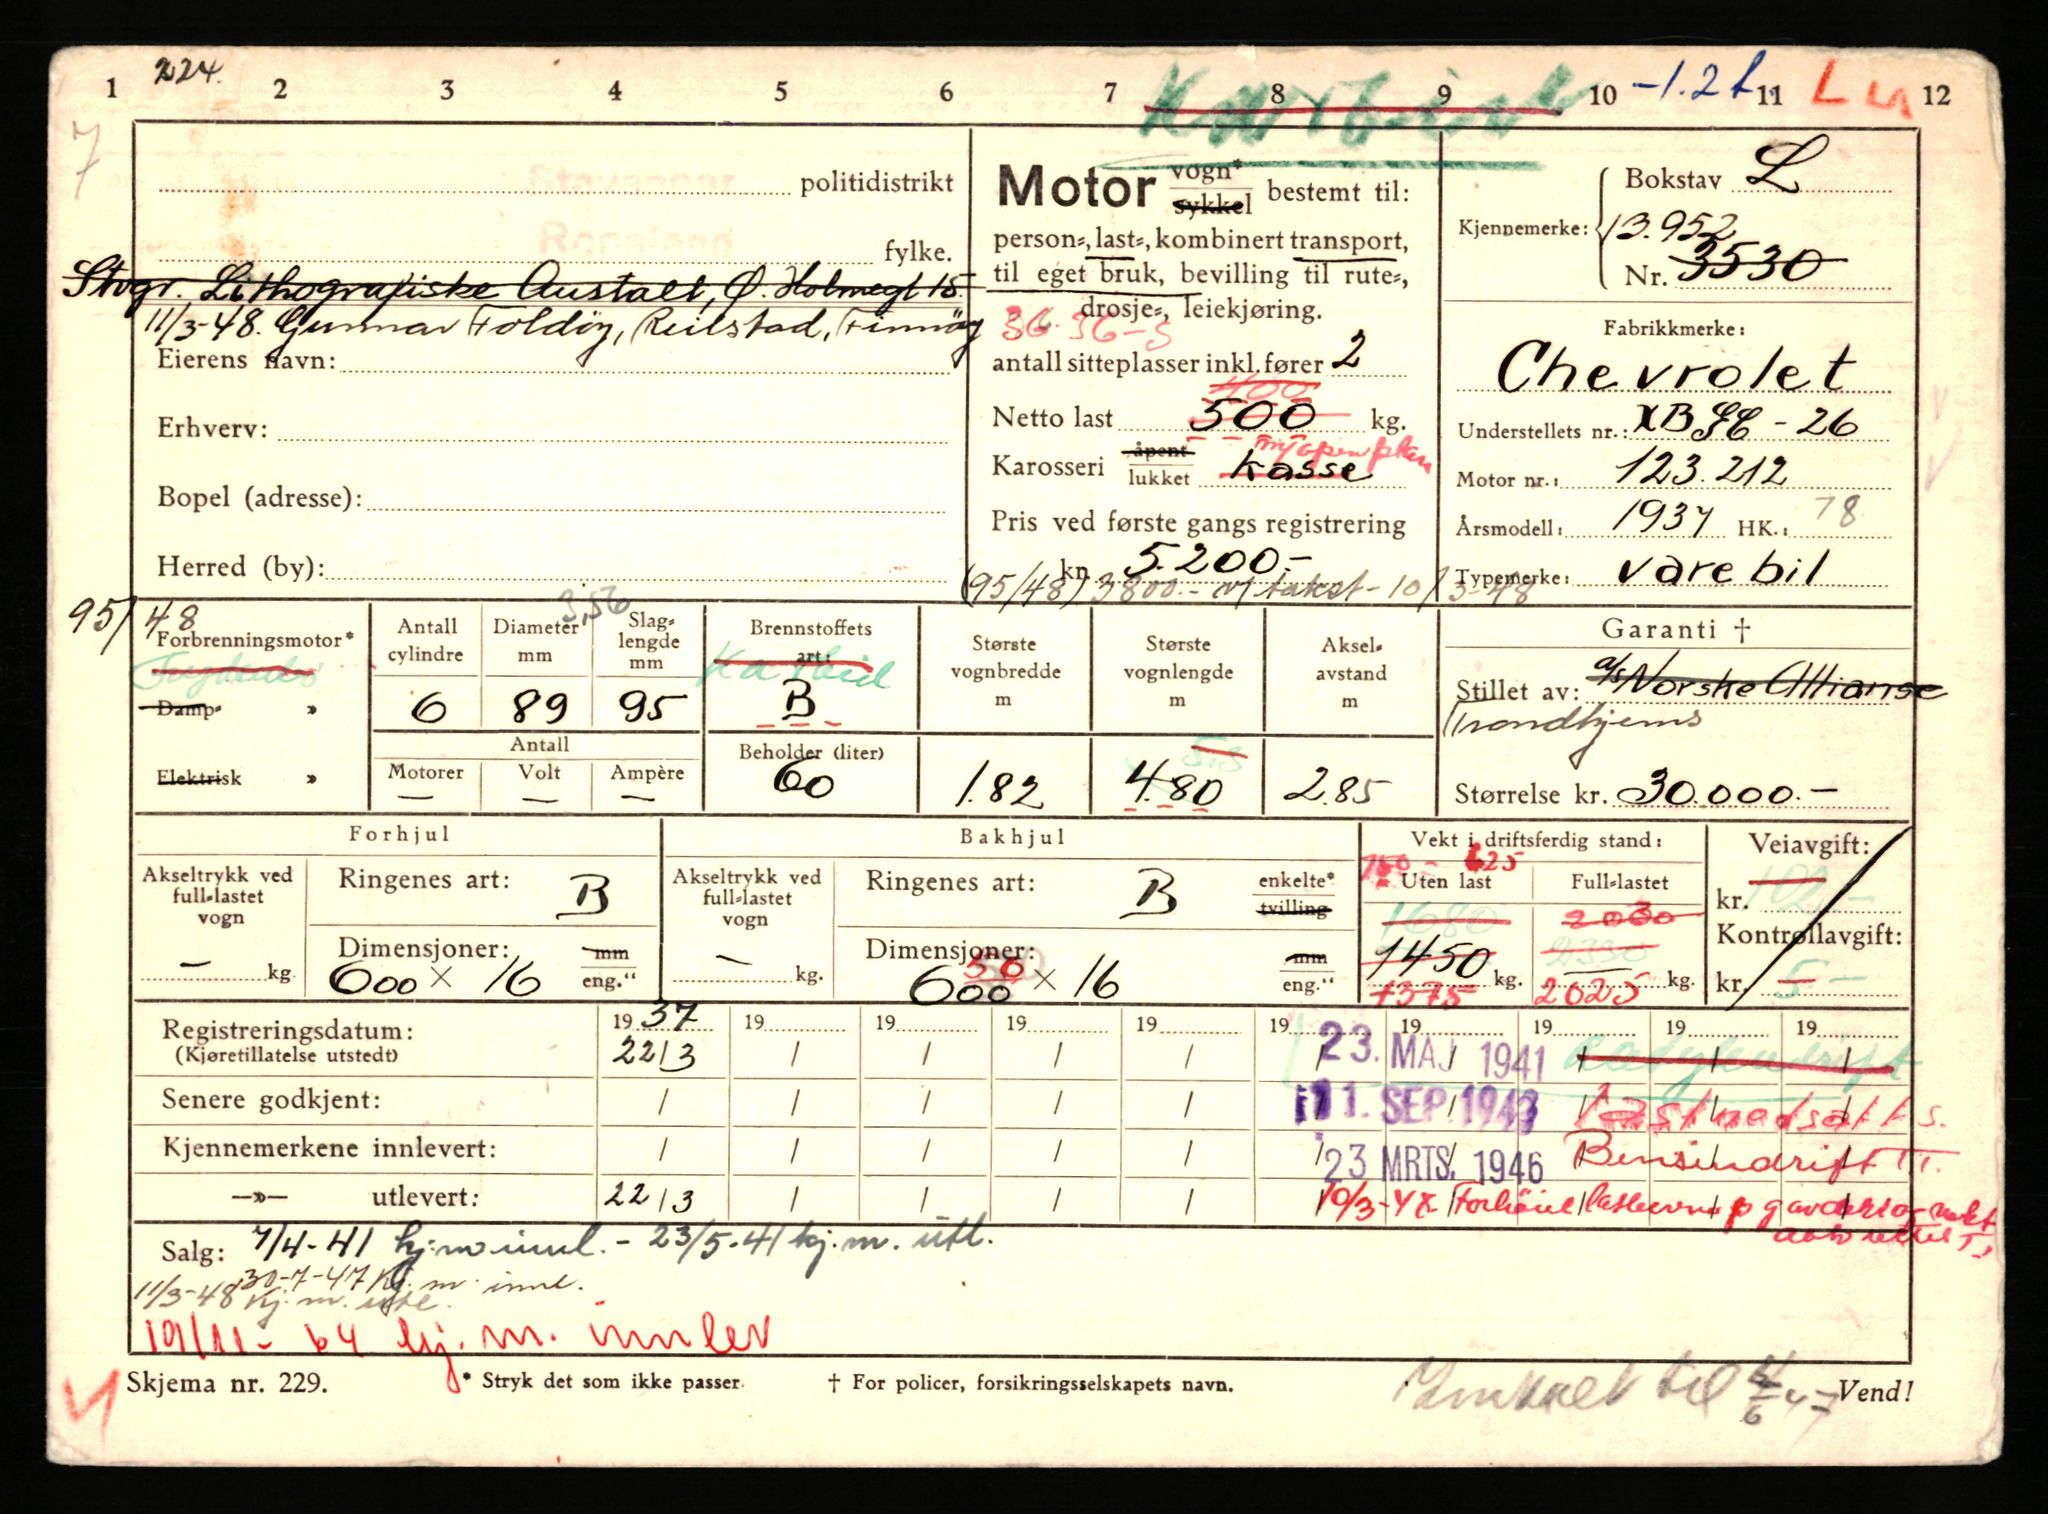 224.
1 2 3 4 5 6 7 8 9 10 11 12
-1.2 t.
7
politidistrikt
fylke.
Stvgr. Lithografiske Anstalt, Ø. Holmegt 15
11/3-48. Gunnar Foldøy, Reilstad, Finnøy
Eierens navn:
Erhverv:
Bopel (adresse):
Herred (by):
Motor vogn* sykkel bestemt til:
person-, last-, kombinert transport,
til eget bruk, bevilling til rute-,
drosje-, leiekjøring.
36 36-3
antall sitteplasser inkl. fører 2
400
Netto last 500 kg.
Karosseri åpent lukket kasse
m/åpen plan
Pris ved første gangs registrering
kr. 5.200.-
(95/48) 3800.- v/ takst - 10/3-48
Kjennemerke: Bokstav L
13.952
Nr. 3530
Fabrikkmerke:
Chevrolet
Understellets nr.: - 26
Motor nr.: 123.212
Årsmodell: 1937 HK.: 78
Typemerke: varebil
95/48
Forbrenningsmotor*
Damp- »
Elektrisk »
Antall cylindre
6
Diameter mm
89
3,56
Slag-lengde mm
95
Antall
Motorer —
Volt —
Ampère —
Brennstoffets art:
Karbid
B
Beholder (liter)
60
Største vognbredde m
1.82
Største vognlengde m
5.5
4.80
Aksel-avstand m
2.85
Garanti †
Stillet av: a/s Norske Allianse
Trondhjems
Størrelse kr. 30.000.-
Forhjul
Akseltrykk ved full-lastet vogn
— kg.
Ringenes art: B
Dimensjoner: mm
600 × 16 eng."
Bakhjul
Akseltrykk ved full-lastet vogn
— kg.
Ringenes art: B enkelte* tvilling
Dimensjoner: mm
50
600 × 16 eng."
Vekt i driftsferdig stand:
750 - 625
Uten last
1680
1450 kg.
1375
Full-lastet
2030
2330
— kg.
2025
Veiavgift:
kr. 102.-
Kontrollavgift:
kr. 5-
Registreringsdatum: 1937 19 19 19 19 19 19 19 19 19
(Kjøretillatelse utstedt) 22/3
23. MAJ 1941
Senere godkjent:
1. SEP. 1943
Kjennemerkene innlevert:
23 MRTS. 1946 Bensindrift
—»— utlevert: 22/3
10/3-48 Forhöiet lasteevne p g av
Salg: 7/4-41 kj.m innl. - 23/5-41 kj.m. utl.
30-7-47 Kj. m. innl.
11/3-48 Kj. m. utl.
19/11-64 kj. m. innlev
Skjema nr. 229. * Stryk det som ikke passer. † For policer, forsikringsselskapets navn. Vend!
til 4/6 47